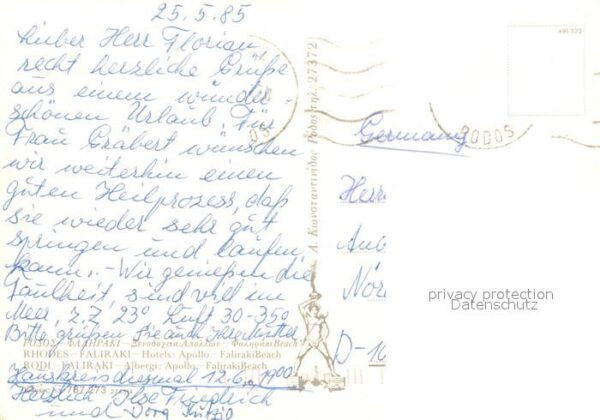 25.5.85
Lieber Herr Florian,
recht herzliche Grüße
aus einem wunder-
schönen Urlaub. Für
Frau Gräbert wünschen
wir weiterhin einen
guten Heilprozess, daß
sie wieder sehr gut
springen und laufen
kann. - Wir genießen die
Faulheit, sind viel im
Meer, z.Z. 23° Luft 30-35°
Bitte grüßen Sie auch Ihre Mutter
ΡΟΔΟΣ - ΦΑΛΗΡΑΚΙ - Ξενοδοχεία: Απόλλων - Φαληράκι Beach
RHODES - FALIRAKI - Hotels: Apollo - FalirakiBeach
RODI - FALIRAKI - Albergi: Apollo - FalirakiBeach
Hauskreis diesmal 12.6. 19.00
Herzlich Ilse Friedrich
und
Α. Κωνσταντινίδου Ρόδος τηλ. 27372
Germany
Herr
Nör
D-10
RODOS
privacy protection
Datenschutz